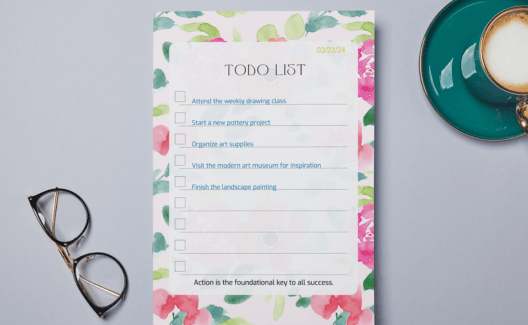 02/22/24
TODO LIST
Attend the weekly drawing class
Start a new pottery project
Organize art supplies
Visit the modern art museum for inspiration
Finish the landscape painting
Action is the foundational key to all success.